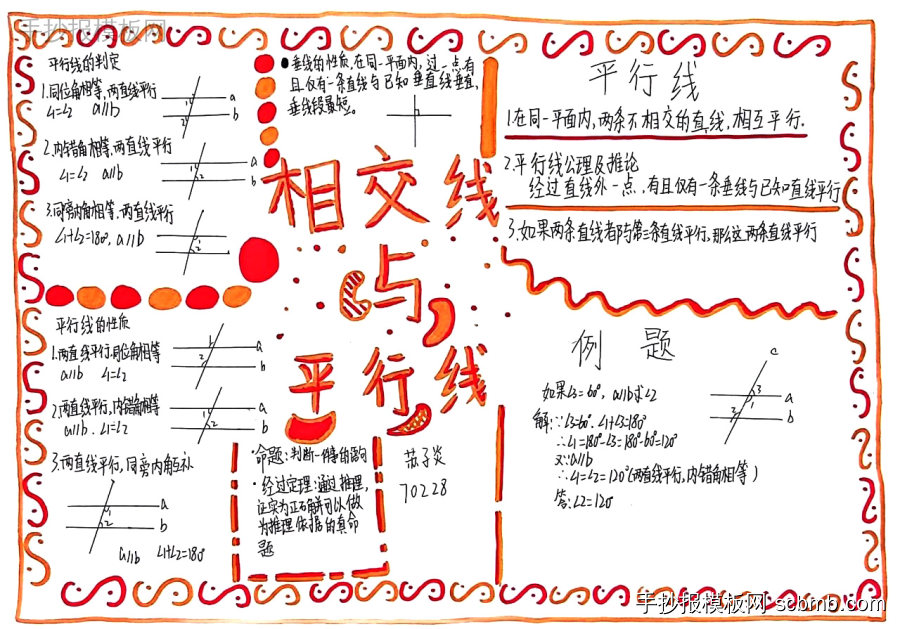 手抄报模板网
平行线的判定
1.同位角相等,两直线平行
∠1=∠2 a∥b
2.内错角相等,两直线平行
∠1=∠2 a∥b
3.同旁内角相等,两直线平行
∠1+∠2=180°, a∥b
平行线的性质
1.两直线平行,同位角相等
a∥b ∠1=∠2
2.两直线平行,内错角相等
a∥b. ∠1=∠2
3.两直线平行,同旁内角互补
a∥b ∠1+∠2=180°
垂线的性质,在同一平面内,过一点有
且仅有一条直线与已知垂直线垂直,
垂线段最短。
相交线
与
平行线
命题:判断一件事的语句
经过定理:通过推理,
证实为正确并可以做
为推理依据的真命
题
70228
平行线
1.在同一平面内,两条不相交的直线,相互平行.
2.平行线公理及推论
经过直线外一点,有且仅有一条垂线与已知直线平行
3.如果两条直线都与第三条直线平行,那么这两条直线平行
例题
如果∠3=60°, a∥b求∠2
解:∵∠3=60°.∠1+∠3=180°
∴∠1=180°-∠3=180°-60°=120°
又∵a∥b
∴∠1=∠2=120°(两直线平行,内错角相等)
答:∠2=120°
a
b
1
2
a
b
1
2
1
2
a
b
1
2
a
b
1
2
a
b
1
2
c
a
b
3
1
2
手抄报模板网 scbmb.com